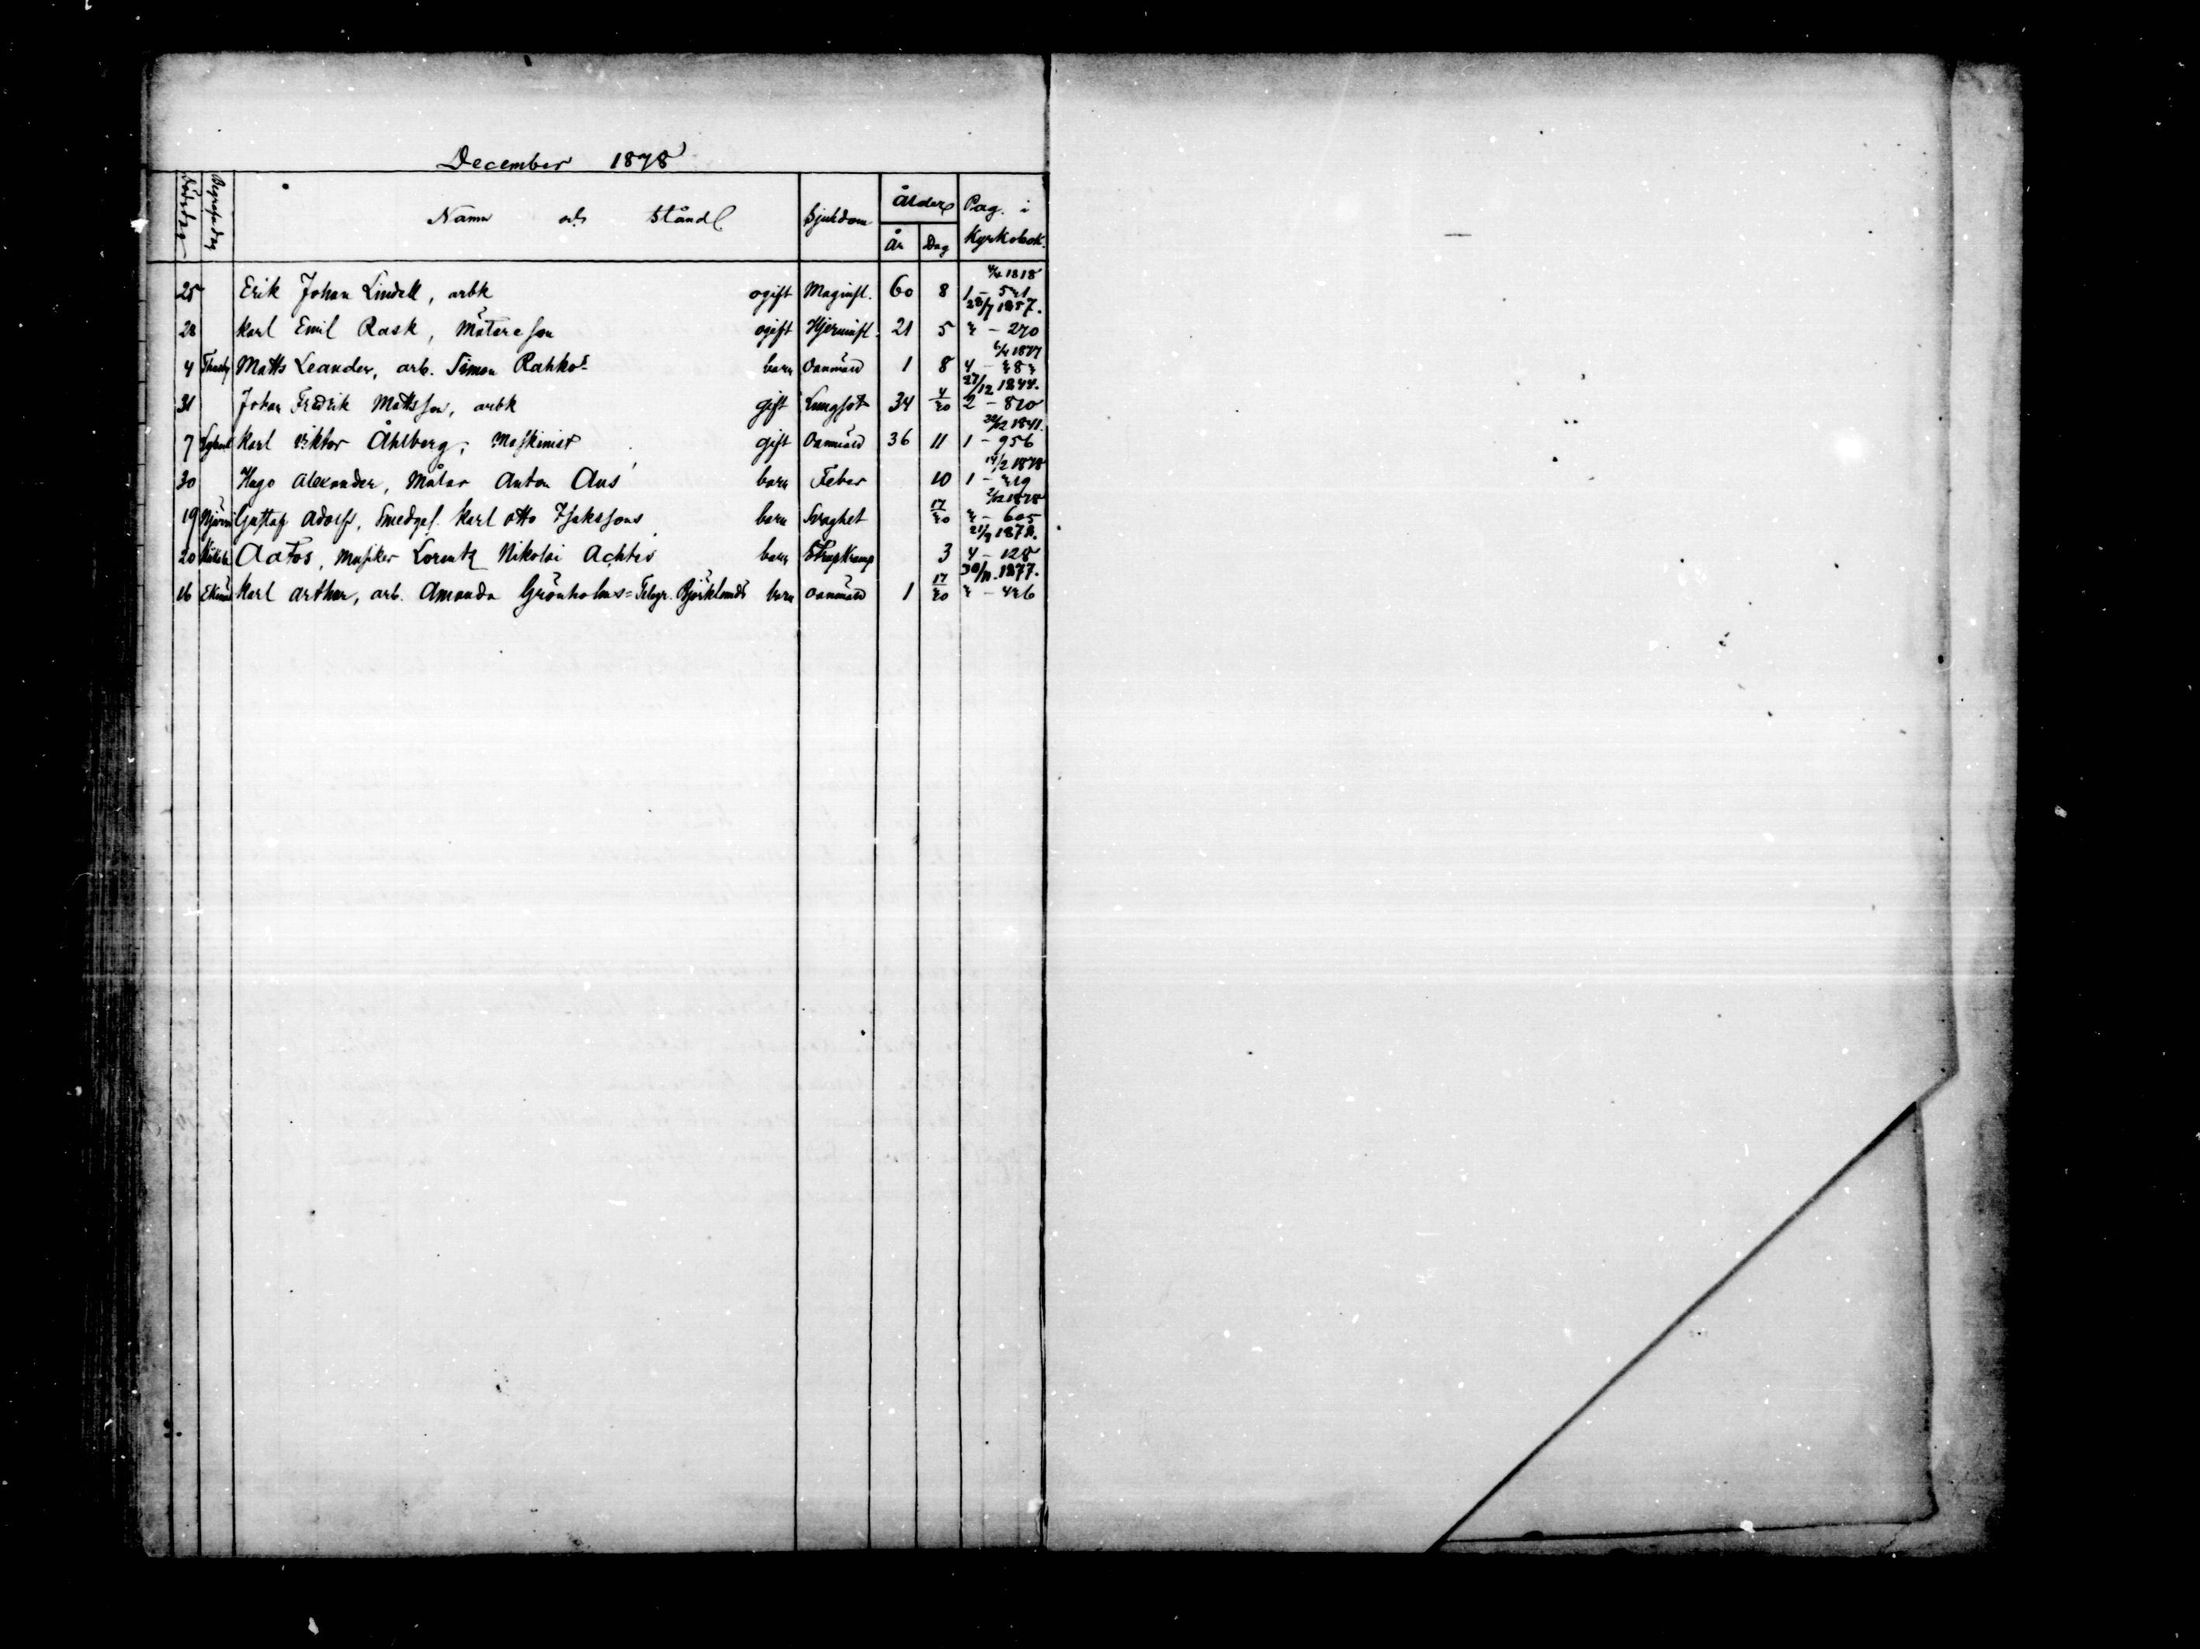 December 1878
Dödsdag Begrafn.dag Namn och stånd Sjukdom Ålder Pag. i
År Dag Kyrkobok.
1818
25 Erik Johan Lindell, arbk ogift Maginfl. 60 8 1 – 521
28/7 1857.
28 Karl Emil Rask, Måtareson ogift Hjerninfl. 21 5 2 – 270
1877
4 Matts Leander, arb. Simon Rahkos barn Oanmäld 1 8 4 – 282
27/12 1844.
31 Johan Fredrik Mattsson, arbk gift Lungsot 34 4/20 2 – 820
1841.
7 Karl Viktor Åhlberg, Maskinist gift Oanmäld 36 11 1 – 956
14/2 1878
30 Hugo Alexander, Målar Anton Aus barn Feber 10 1 – 219
1878
19 Gustaf Adolf, Smedges. Karl Otto Isakssons barn Svaghet 17/20 2 – 605
21/9 1878.
20 Aatos, Musiker Lorentz Nikolai Achtés barn Strupkramp 3 4 – 128
30/11. 1877.
16 Karl Arthur, arb. Amanda Grönholms = Telegr. Björklunds barn Oanmäld 1 17/20 2 – 426